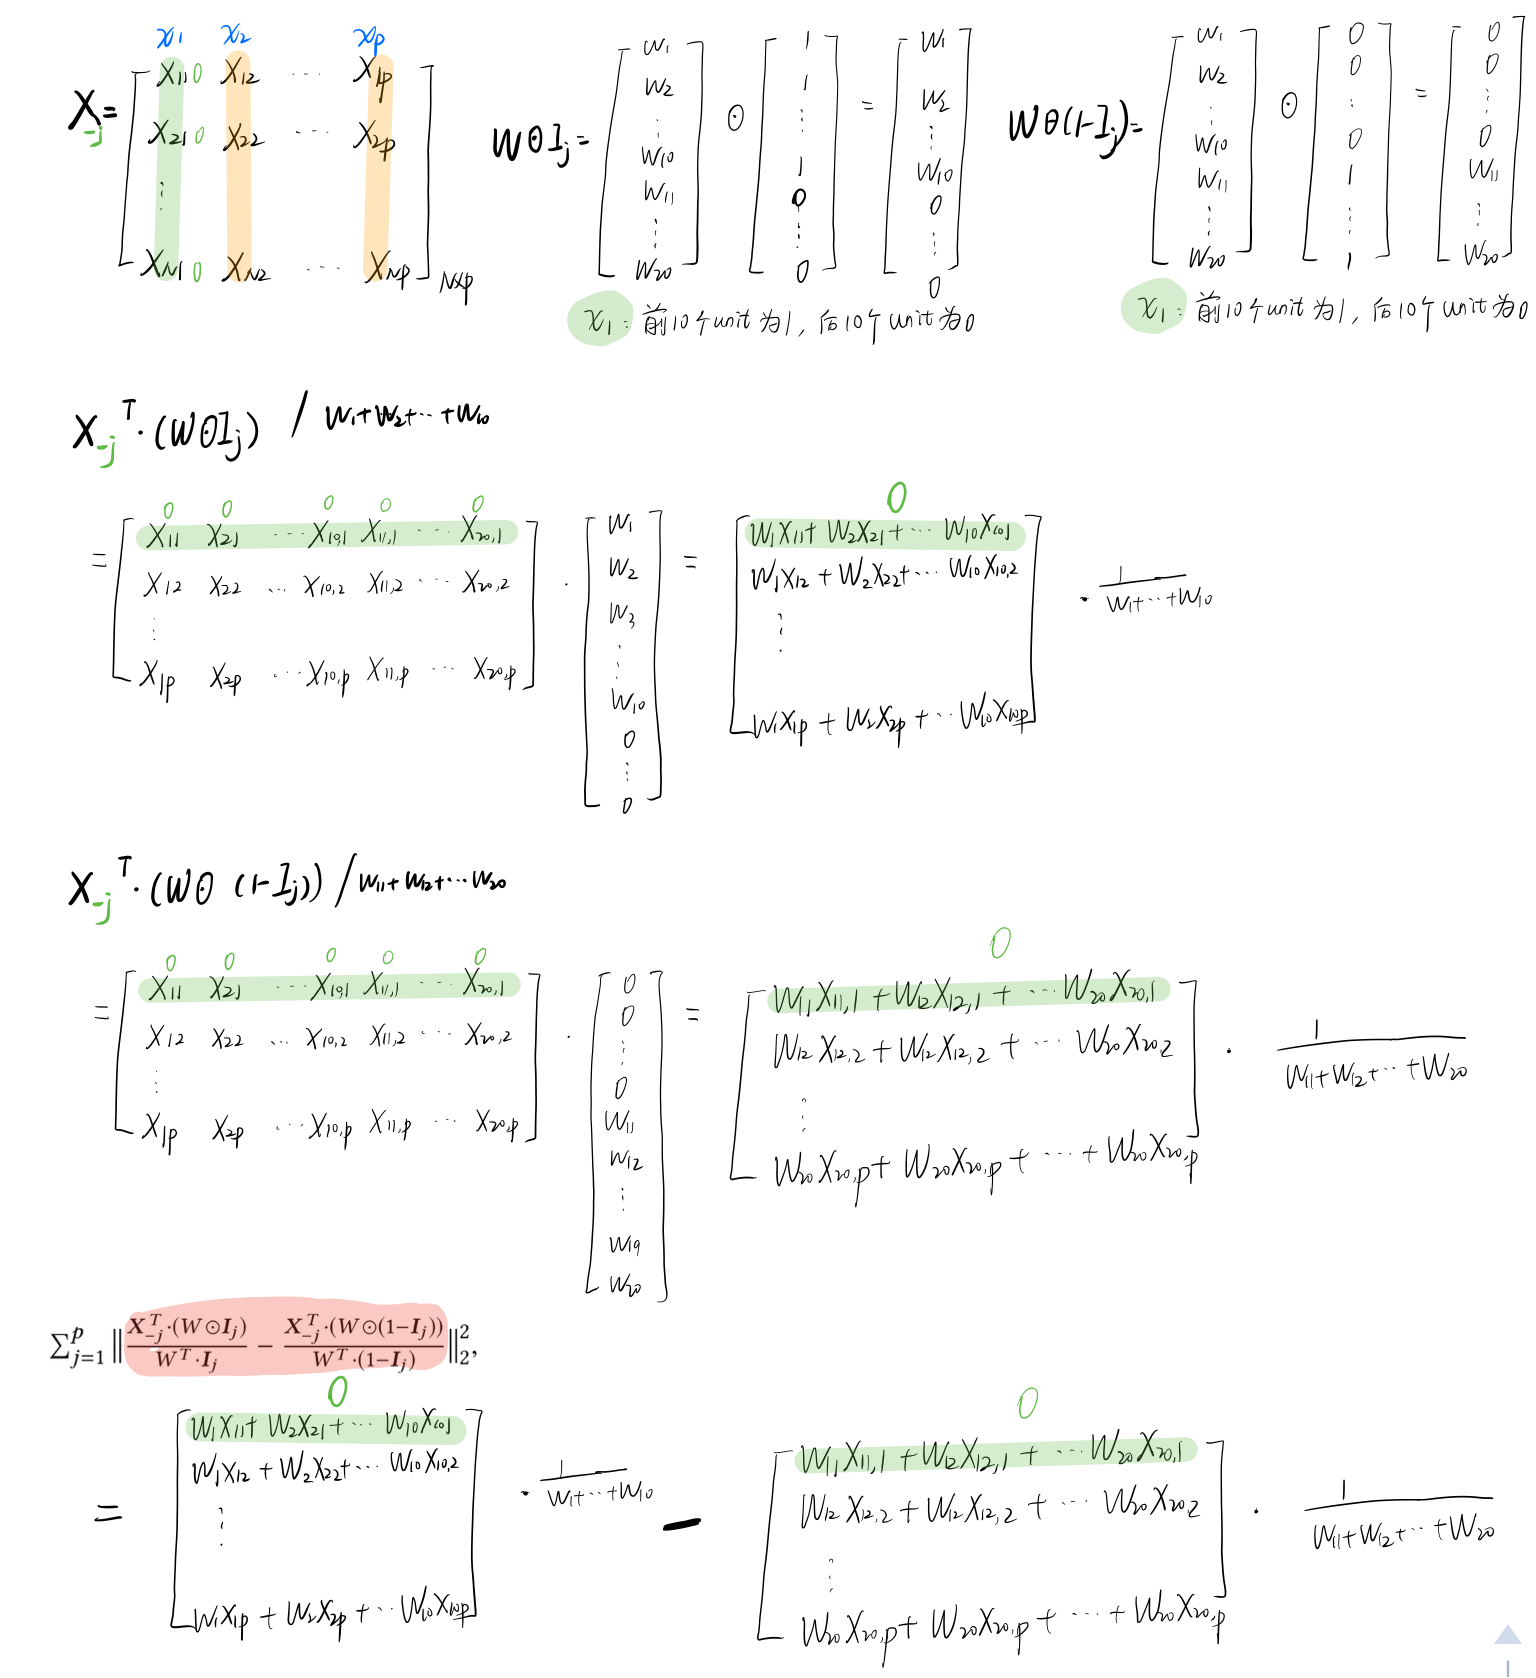 x₁ x₂ xₚ
X₋ⱼ = [ X₁₁ 0 X₁₂ ··· X₁ₚ
X₂₁ 0 X₂₂ ··· X₂ₚ
⋮
X_N1 0 X_N2 ··· X_Np ] N×p
W⊙Iⱼ = [ W₁ W₂ ⋮ W₁₀ W₁₁ ⋮ W₂₀ ] ⊙ [ 1 1 ⋮ 1 0 ⋮ 0 ] = [ W₁ W₂ ⋮ W₁₀ 0 ⋮ 0 ]
x₁: 前10个unit为1, 后10个unit为0
W⊙(1-Iⱼ) = [ W₁ W₂ ⋮ W₁₀ W₁₁ ⋮ W₂₀ ] ⊙ [ 0 0 ⋮ 0 1 ⋮ 1 ] = [ 0 0 ⋮ 0 W₁₁ ⋮ W₂₀ ]
x₁: 前10个unit为1, 后10个unit为0
X₋ⱼᵀ·(W⊙Iⱼ) / W₁+W₂+···+W₁₀
0 0 0 0 0
= [ X₁₁ X₂₁ ··· X₁₀,₁ X₁₁,₁ ··· X₂₀,₁
X₁₂ X₂₂ ··· X₁₀,₂ X₁₁,₂ ··· X₂₀,₂
⋮
X₁ₚ X₂ₚ ··· X₁₀,ₚ X₁₁,ₚ ··· X₂₀,ₚ ]
· [ W₁ W₂ W₃ ⋮ W₁₀ 0 ⋮ 0 ]
0
= [ W₁X₁₁+W₂X₂₁+···W₁₀X₁₀,₁
W₁X₁₂+W₂X₂₂+···W₁₀X₁₀,₂
⋮
W₁X₁ₚ+W₂X₂ₚ+···W₁₀X₁₀ₚ ]
· 1 / W₁+···+W₁₀
X₋ⱼᵀ·(W⊙(1-Iⱼ)) / W₁₁+W₁₂+···W₂₀
0 0 0 0 0
= [ X₁₁ X₂₁ ··· X₁₀,₁ X₁₁,₁ ··· X₂₀,₁
X₁₂ X₂₂ ··· X₁₀,₂ X₁₁,₂ ··· X₂₀,₂
⋮
X₁ₚ X₂ₚ ··· X₁₀,ₚ X₁₁,ₚ ··· X₂₀,ₚ ]
· [ 0 0 ⋮ 0 W₁₁ W₁₂ ⋮ W₁₉ W₂₀ ]
0
= [ W₁₁X₁₁,₁+W₁₂X₁₂,₁+···W₂₀X₂₀,₁
W₁₂X₁₂,₂+W₁₂X₁₂,₂+···W₂₀X₂₀,₂
⋮
W₂₀X₂₀,ₚ+W₂₀X₂₀,ₚ+···+W₂₀X₂₀,ₚ ]
· 1 / W₁₁+W₁₂+···+W₂₀
∑ⱼ₌₁ᵖ ‖ X₋ⱼᵀ·(W⊙Iⱼ) / Wᵀ·Iⱼ − X₋ⱼᵀ·(W⊙(1−Iⱼ)) / Wᵀ·(1−Iⱼ) ‖₂²,
0
= [ W₁X₁₁+W₂X₂₁+···W₁₀X₁₀,₁
W₁X₁₂+W₂X₂₂+···W₁₀X₁₀,₂
⋮
W₁X₁ₚ+W₂X₂ₚ+···W₁₀X₁₀ₚ ]
· 1 / W₁+···+W₁₀
−
0
[ W₁₁X₁₁,₁+W₁₂X₁₂,₁+···W₂₀X₂₀,₁
W₁₂X₁₂,₂+W₁₂X₁₂,₂+···W₂₀X₂₀,₂
⋮
W₂₀X₂₀,ₚ+W₂₀X₂₀,ₚ+···+W₂₀X₂₀,ₚ ]
· 1 / W₁₁+W₁₂+···+W₂₀